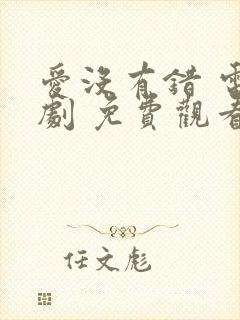 愛沒有錯 電
劇 免費觀看
任文彪